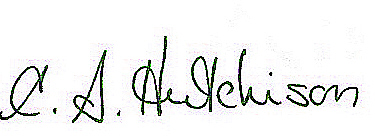 C. S. Hutchison